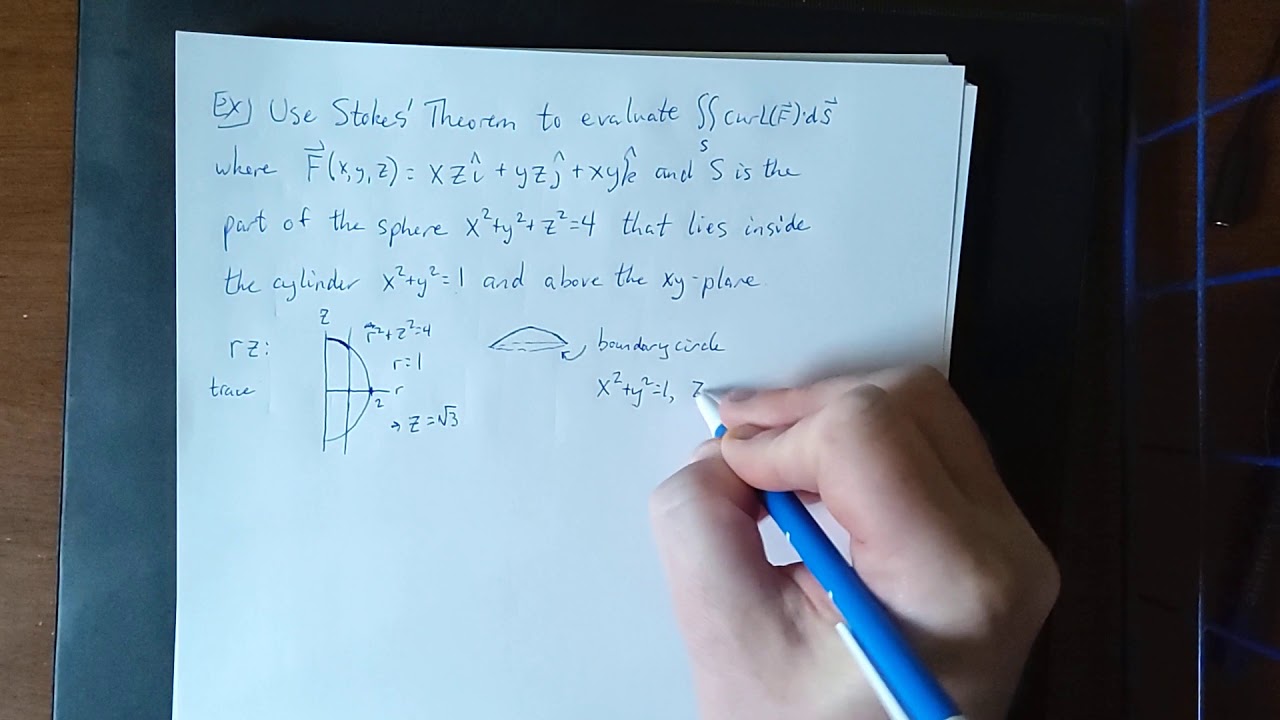 Ex) Use Stokes' Theorem to evaluate ∬ₛ curl(F⃗)·dS⃗
where F⃗(x,y,z) = xzî + yzĵ + xyk̂ and S is the
part of the sphere x²+y²+z²=4 that lies inside
the cylinder x²+y²=1 and above the xy-plane.
rz:
trace
z
r²+z²=4
r=1
r
2
→ z=√3
boundary circle
x²+y²=1, z